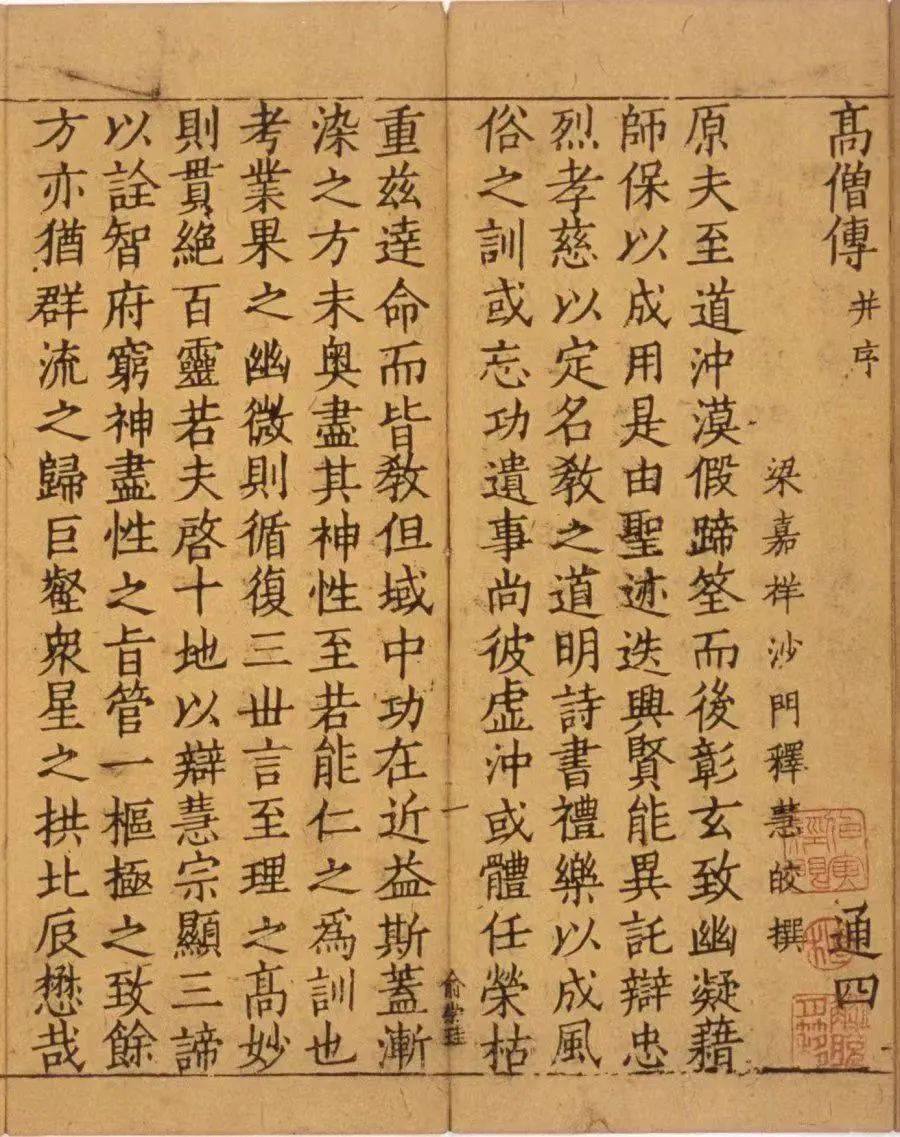 高僧傳 并序 通四
梁嘉祥沙門釋慧皎撰
原夫至道沖漠假蹄筌而後彰玄致幽凝藉
師保以成用是由聖迹迭興賢能異託辯忠
烈孝慈以定名教之道明詩書禮樂以成風
俗之訓或忘功遺事尚彼虛沖或體任榮枯
重茲達命而皆教但域中功在近益斯蓋漸
染之方未奧盡其神性至若能仁之爲訓也
考業果之幽微則循復三世言至理之高妙
則貫絕百靈若夫啓十地以辯慧宗顯三諦
以詮智府窮神盡性之旨管一樞極之致餘
方亦猶群流之歸巨壑衆星之拱北辰懋哉